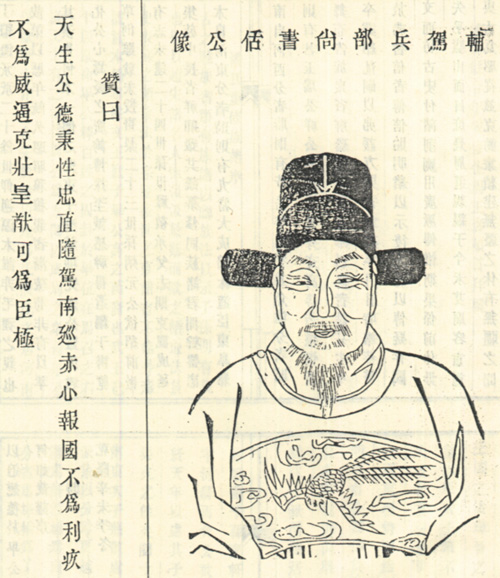 輔駕兵部尚書恬公像
贊曰
天生公德秉性忠直隨駕南廵赤心報國不爲利疚
不爲威逼克壯皇猷可爲臣極